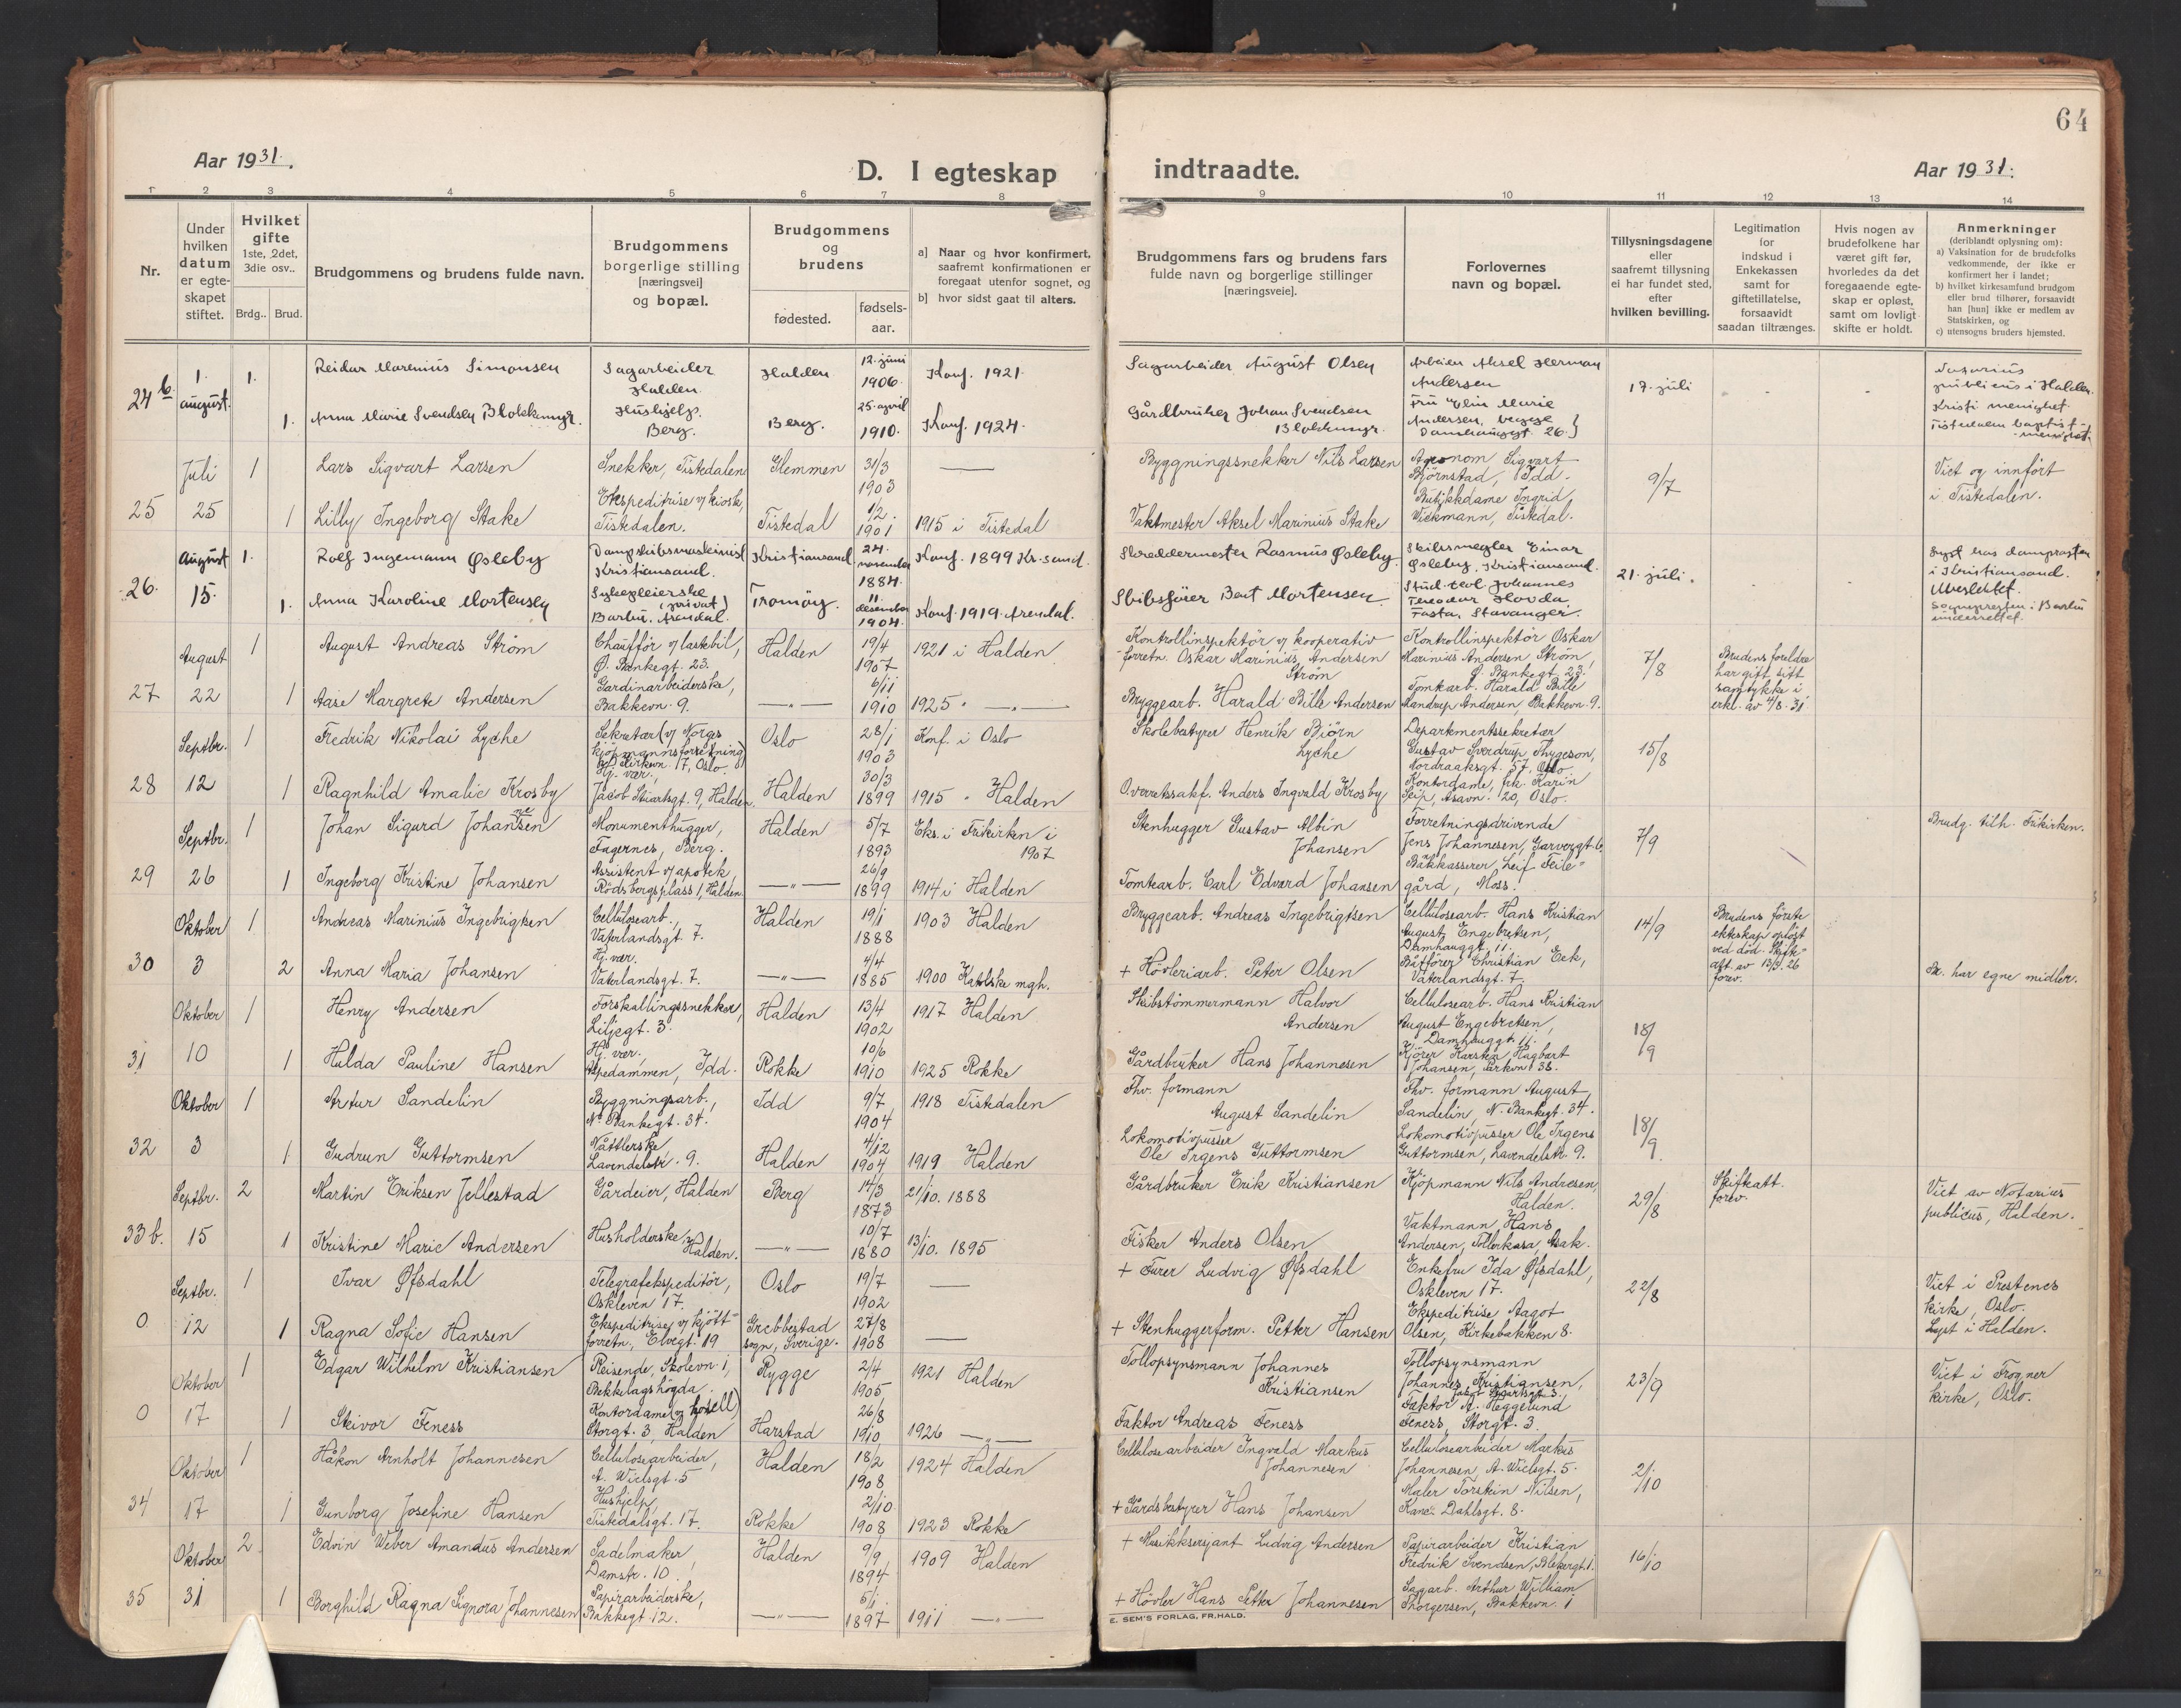 64
Aar 1931.
D. I egteskap
indtraadte.
Aar 1931.
1 2 3 4 5 6 7 8 9 10 11 12 13 14
Nr.
Under hvilken datum er egte-skapet stiftet.
Hvilket gifte 1ste, 2det, 3die osv..
Brdg.. Brud.
Brudgommens og brudens fulde navn.
Brudgommens borgerlige stilling [næringsvei] og bopæl.
Brudgommens og brudens
fødested.
fødsels-aar.
a] Naar og hvor konfirmert, saafremt konfirmationen er foregaat utenfor sognet, og
b] hvor sidst gaat til alters.
Brudgommens fars og brudens fars fulde navn og borgerlige stillinger [næringsveie].
Forlovernes navn og bopæl.
Tillysningsdagene eller saafremt tillysning ei har fundet sted, efter hvilken bevilling.
Legitimation for indskud i Enkekassen samt for giftetillatelse, forsaavidt saadan tiltrænges.
Hvis nogen av brudefolkene har været gift før, hvorledes da det foregaaende egte-skap er opløst, samt om lovligt skifte er holdt.
Anmerkninger (deriblandt oplysning om):
a) Vaksination for de brudefolks vedkommende, der ikke er konfirmert her i landet;
b) hvilket kirkesamfund brudgom eller brud tilhører, forsaavidt han [hun] ikke er medlem av Statskirken, og
c) utensogns bruders hjemsted.
24 b. 1. august. 1. Reidar Marenius Simonsen Sagarbeider Halden. Halden 12. juni 1906. Konf. 1921. Sagarbeider August Olsen Arbeider Aksel Herman Andersen 17. juli Notarius publicus i Halden.
1. Anna Marie Svendsen Blakkmyr. Hushjelp. Berg. Berg. 25. april 1910. Konf. 1924. Gårdbruker Johan Svendsen Blakkmyr. Fru Elin Marie Andersen, begge Damhauggt. 26. Kristi menighet. Tistedalen baptist-menighet.
25 Juli 25 1 Lars Sigvart Larsen Snekker, Tistedalen Glemmen 31/3 1903 Byggningssnekker Nils Larsen Agronom Sigvart Bjørnstad, Idd. 9/7 Viet og innført i Tistedalen.
1 Lilly Ingeborg Stake Ekspeditrise v/ kiosk, Tistedalen. Tistedal 1/2 1901 1915 i Tistedal Vaktmester Aksel Marinius Stake Butikkdame Ingrid Wickmann, Tistedal.
26. August 15. 1. Rolf Ingemann Øsleby Dampskibsmaskinist Kristiansand. Kristiansand 24. november 1884. Konf. 1899 Kr.sand. Skreddermester Rasmus Øsleby. Skibsmegler Einar Øsleby, Kristiansand. 21. juli. Lyst hos domprosten i Kristiansand.
1. Anna Karoline Mortensen Sykepleierske (privat) Barbu, Arendal. Tromøy. 11. desember 1904. Konf. 1919. Arendal. Skibsfører Bent Mortensen. Stud. teol. Johannes Teodor Hovda Fasta, Stavanger. Sognepresten i Barbu underrettet.
27 August 22 1 August Andreas Strøm Chauffør v/ lastebil, Ø. Bankegt. 23. Halden 19/4 1907 1921 i Halden Kontrollinspektør v/ kooperativ forretn. Oskar Marinius Andersen Strøm Kontrollinspektør Oskar Marinius Andersen Strøm, Ø. Bankegt. 23. 7/8 Brudens foreldre har gitt sitt samtykke i erkl. av 4/8. 31.
1 Aase Margrete Andersen Gardinarbeiderske, Bakkevn. 9. —"— 6/11 1910 1925 " —"— Bryggearb. Harald Bille Andersen Tomtearb. Harald Bille Mandrup Andersen, Bakkevn. 9.
28 Septbr. 12 1 Fredrik Nikolai Lyche Sekretær (v/ Norges kjøpmannsforretning) Kirkevn. 17, Oslo. Oslo 28/1 1903 Konf. i Oslo Skolebestyrer Henrik Bjørn Lyche Departementssekretær Gustav Sverdrup Thygeson, Nordraaksgt. 57, Oslo 15/8
1 Ragnhild Amalie Krosby Hj. vær., Jacob Stuartsgt. 9, Halden. Halden 30/3 1899 1915 " Halden Overretssakf. Anders Ingvald Krosby Kontordame, frk. Karin Seip, Asavn. 20, Oslo.
29 Septbr. 26 1 Johan Sigurd Johansen Monumenthugger, Fagernes, Berg. Halden 5/7 1893 Eks. i Frikirken i 1907 Stenhugger Gustav Albin Johansen Forretningsdrivende Jens Johannesen, Garvergt. 6. 7/9 Brudg. tilh. Frikirken.
1 Ingeborg Kristine Johansen Assistent v/ apotek, Rødsbergsplass 1, Halden. —"— 26/9 1899 1914 i Halden Tomtearb. Carl Edvard Johansen Bakkasserer Leif Feilegård, Moss.
30 Oktober 3 1 Andreas Marinius Ingebrigtsen Cellulosearb., Vaterlandsgt. 7. Halden 19/1 1888 1903 Halden Bryggearb. Andreas Ingebrigtsen Cellulosearb. Hans Kristian August Engebretsen, Damhauggt. 11. 14/9 Brudens første ekteskap opløst ved død. Skifteatt. av 13/3. 26 forev.
2 Anna Maria Johansen Hj. vær. Vaterlandsgt. 7. —"— 4/4 1885 1900 Katolske mgh. + Høvleriarb. Peter Olsen Båtfører Christian Eek, Vaterlandsgt. 7. Br. har egne midler.
31 Oktober 10 1 Henry Andersen Forskallingssnekker, Liljegt. 3. Halden 13/4 1902 1917 Halden Skibstømmermann Halvor Andersen Cellulosearb. Hans Kristian August Engebretsen, Damhauggt. 11. 18/9
1 Hulda Pauline Hansen Hj. vær., Aspedammen, Idd. Rokke 10/6 1910 1925 Rokke Gårdbruker Hans Johannesen Kjører Karsten Hagbart Johansen, Parkvn. 38.
32 Oktober 3 1 Artur Sandelin Byggningsarb., N. Bankegt. 34. Idd 9/7 1904 1918 Tistedalen Fhv. formann August Sandelin Fhv. formann August Sandelin, N. Bankegt. 34. 18/9
1 Gudrun Guttormsen Nåttlerske Lavendelstr. 9. Halden 4/12 1904 1919 Halden Lokomotivpusser Ole Irgens Guttormsen Lokomotivpusser Ole Irgens Guttormsen, Lavendelstr. 9.
33 b. Septbr. 15 2 Martin Eriksen Jellestad Gårdeier, Halden Berg 14/3 1873 21/10. 1888 Gårdbruker Erik Kristiansen Kjøpmann Nils Andresen, Halden. 29/8 Skifteatt. forev. Viet av Notarius publicus, Halden.
1 Kristine Marie Andersen Husholderske, Halden. —"— 10/7 1880 13/10. 1895 Fisker Anders Olsen Vaktmann Hans Andersen, Tollerkasa, Asak.
0 Septbr. 12 1 Ivar Øfsdahl Telegrafekspeditør, Oskleven 17. Oslo 19/7 1902 + Furer Ludvig Øfsdahl Enkefru Ida Øfsdahl, Oskleven 17. 22/8 Viet i Prestenes kirke, Oslo. Lyst i Halden.
1 Ragna Sofie Hansen Ekspeditrise v/ kjøtt-forretn., Elvegt. 19 Grebbestad sogn, Sverige. 27/8 1908 + Stenhuggerform. Petter Hansen Ekspeditrise Aagot Olsen, Kirkebakken 8.
0 Oktober 17 1 Edgar Wilhelm Kristiansen Reisende, Skolevn. 1, Bekkelagshøgda. Rygge 2/4 1905 1921 Halden Tollopsynsmann Johannes Kristiansen Tollopsynsmann Johannes Kristiansen, 23/9 Viet i Frogner kirke, Oslo.
1 Skivor Feness Kontordame (v/ hotell) Storgt. 3, Halden Harstad 26/8 1910 1926 —"— Faktor Andreas Feness Faktor A. Heggelund Feness, Storgt. 3.
34 Oktober 17 1 Håkon Arnholt Johannesen Cellulosearbeider, A. Wielsgt. 5 Halden 18/2 1908 1924 Halden Cellulosearbeider Ingvald Markus Johannesen Cellulosearbeider Markus Johannesen, A. Wielsgt. 5. 2/10
1 Gunborg Josefine Hansen Hushjelp, Tistedalsgt. 17. Rokke 2/10 1908 1923 Rokke + Gårdsbestyrer Hans Johansen Maler Torstein Nilsen, Karen Dahlsgt. 8.
35 Oktober 31 2 Edvin Weber Amandus Andersen Sadelmaker, Damstr. 10. Halden 9/9 1894 1909 Halden + Musikksersjant Ludvig Andersen Papirarbeider Kristian Fredrik Svendsen, Blekergt. 1. 16/10
1 Borghild Ragna Signora Johannesen Papirarbeiderske, Bakkegt. 12. —"— 5/1 1897 1911 —"— + Høvler Hans Petter Johannesen Sagarb. Arthur William Thorgersen, Bakkevn. 1
E. SEM'S FORLAG, FR.HALD.